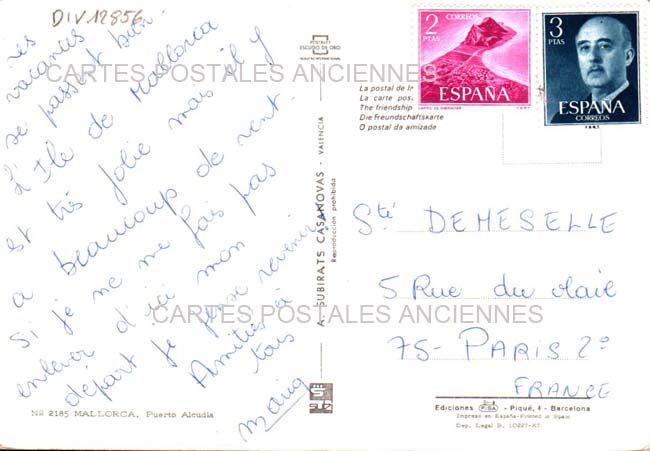 DIV.12856
Les
vacances
se passent bien.
L'Ile de Mallorca
est très jolie mais il y
a beaucoup de vent.
Si je ne me fais pas
enlever d'ici mon
départ je pense revenir
Amitiés à
tous
CARTES POSTALES ANCIENNES
CARTES POSTALES ANCIENNES
Nº 2185 MALLORCA. Puerto Alcudia
POSTALES
ESCUDO DE ORO
A. SUBIRATS CASANOVAS - VALENCIA
Reproducción prohibida
La postal de
La carte pos
The friendship
Die Freundschaftskarte
O postal da amizade
2
PTAS
CORREOS
ESPAÑA
CAMPO DE GIBRALTAR
F.N.M.T.
3
PTAS
ESPAÑA
CORREOS
F.N.M.T.
Sté DEMESELLE
5 Rue du Mail
75-PARIS 2º
FRANCE
Ediciones FISA - Piqué, 4 - Barcelona
Impreso en España-Printed in Spain
Dep. Legal B. 10227-XI